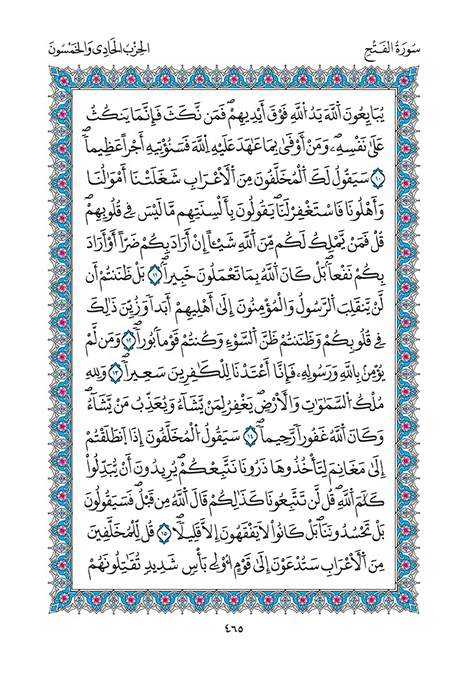 سُورَةُ الفَتْحِ
الحِزْبُ الحَادِى وَالخَمْسُونَ
يُبَايِعُونَ اَ۬للَّهَ يَدُ اُ۬للَّهِ فَوْقَ أَيْدِيهِمْۖ فَمَن نَّكَثَ فَإِنَّمَا يَنكُثُ
عَلَىٰ نَفْسِهِۦۖ وَمَنْ أَوْفَىٰ بِمَا عَٰهَدَ عَلَيْهِ اِ۬للَّهَ فَسَنُؤْتِيهِ أَجْراً عَظِيماًۖ
١٠ سَيَقُولُ لَكَ اَ۬لْمُخَلَّفُونَ مِنَ اَ۬لْأَعْرَابِ شَغَلَتْنَا أَمْوَٰلُنَا
وَأَهْلُونَا فَاسْتَغْفِرْ لَنَاۖ يَقُولُونَ بِأَلْسِنَتِهِم مَّا لَيْسَ فِے قُلُوبِهِمْۖ
قُلْ فَمَن يَّمْلِكُ لَكُم مِّنَ اَ۬للَّهِ شَيْـاً إِنْ أَرَادَ بِكُمْ ضَرّاً أَوْ أَرَادَ
بِكُمْ نَفْعاًۖ بَلْ كَانَ اَ۬للَّهُ بِمَا تَعْمَلُونَ خَبِيراًۖ ١١ بَلْ ظَنَنتُمْ أَن
لَّنْ يَّنقَلِبَ اَ۬لرَّسُولُ وَالْمُؤْمِنُونَ إِلَىٰ أَهْلِيهِمْ أَبَداً وَزُيِّنَ ذَٰلِكَ
فِے قُلُوبِكُمْ وَظَنَنتُمْ ظَنَّ اَ۬لسَّوْءِ وَكُنتُمْ قَوْماَۢ بُوراًۖ ١٢ وَمَن لَّمْ
يُؤْمِنۢ بِاللَّهِ وَرَسُولِهِۦ فَإِنَّا أَعْتَدْنَا لِلْكَٰفِرِينَ سَعِيراًۖ ١٣ وَلِلهِ
مُلْكُ اُ۬لسَّمَٰوَٰتِ وَالْأَرْضِۖ يَغْفِرُ لِمَنْ يَّشَآءُ وَيُعَذِّبُ مَنْ يَّشَآءُۖ
وَكَانَ اَ۬للَّهُ غَفُوراً رَّحِيماًۖ ١٤ سَيَقُولُ اُ۬لْمُخَلَّفُونَ إِذَا اَ۪نطَلَقْتُمْ
إِلَىٰ مَغَانِمَ لِتَأْخُذُوهَا ذَرُونَا نَتَّبِعْكُمْۖ يُرِيدُونَ أَنْ يُّبَدِّلُواْ
كَلَٰمَ اَ۬للَّهِۖ قُل لَّن تَتَّبِعُونَا كَذَٰلِكُمْ قَالَ اَ۬للَّهُ مِن قَبْلُۖ فَسَيَقُولُونَ
بَلْ تَحْسُدُونَنَاۖ بَلْ كَانُواْ لَا يَفْقَهُونَ إِلَّا قَلِيلاًۖ ١٥ قُل لِّلْمُخَلَّفِينَ
مِنَ اَ۬لْأَعْرَابِ سَتُدْعَوْنَ إِلَىٰ قَوْمٍ ا۟وْلِے بَأْسٍ شَدِيدٍ تُقَٰتِلُونَهُمْ
٤٦٥